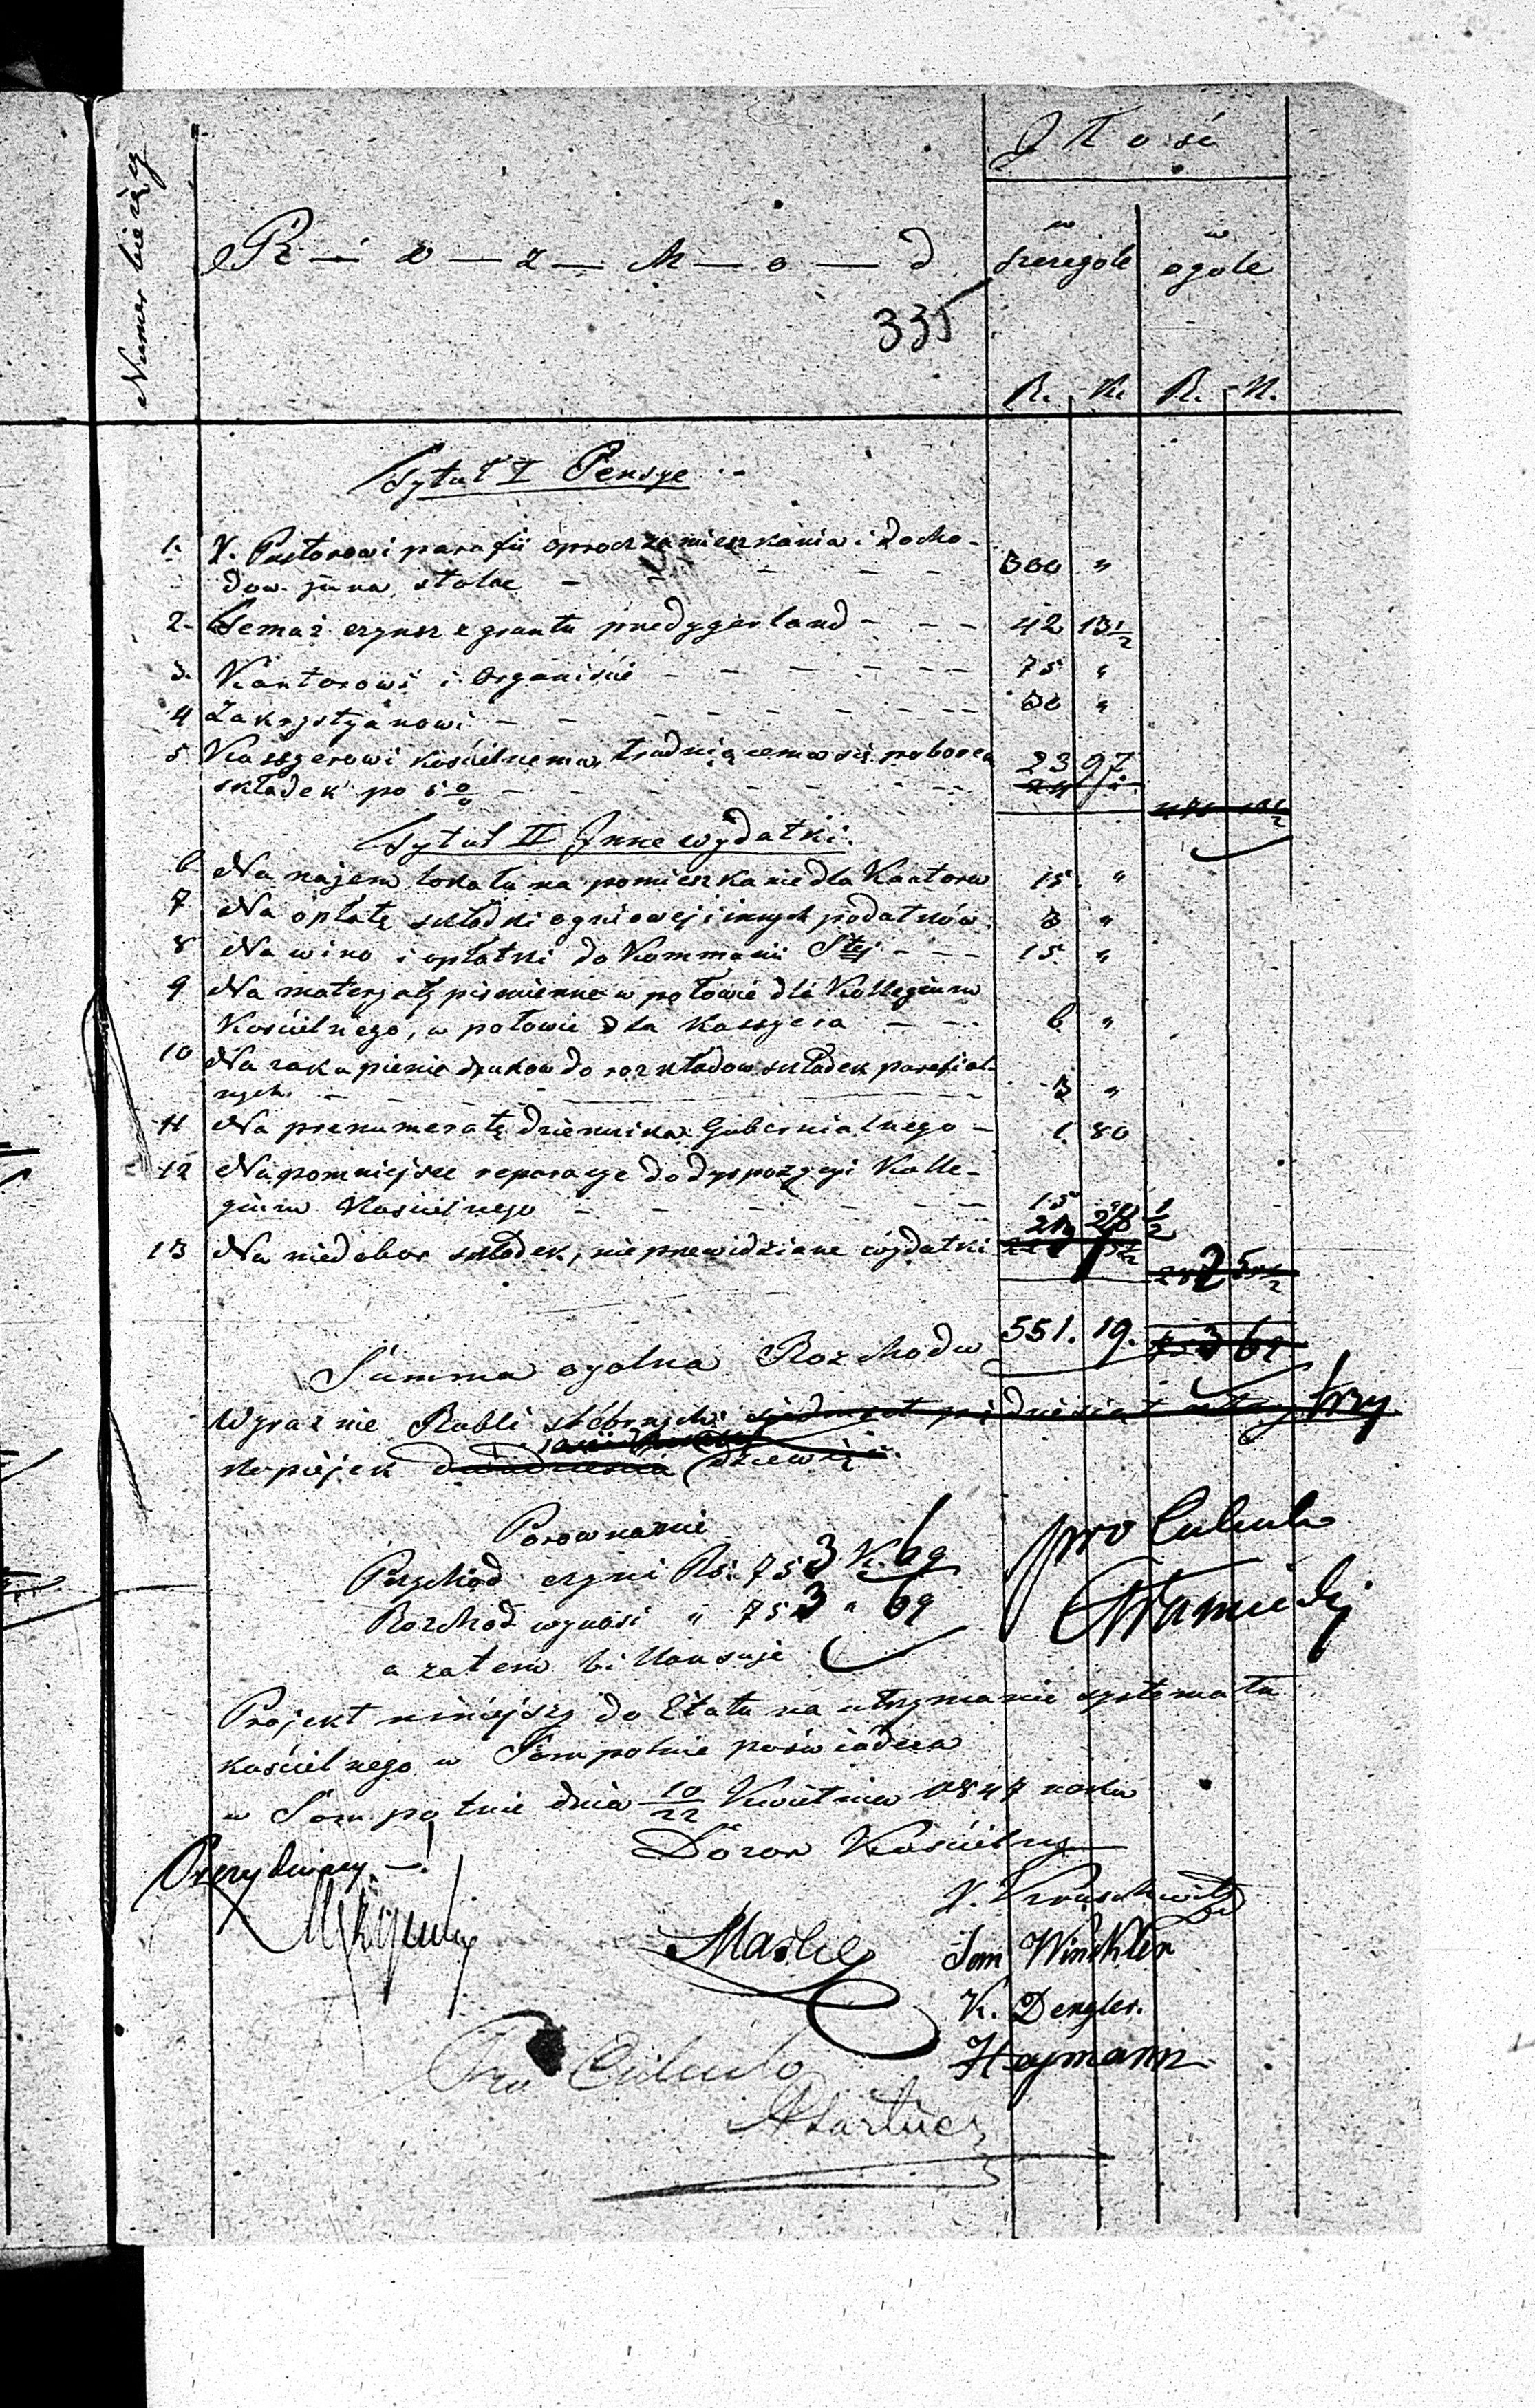 Numer bieżący
R — o — z — ch — o — d
Ilość
w szczególe
w ogóle
335
R. K. R. K.
Tytuł I Pensye
1. X. Pastorowi parafii oprócz zamieszkania i docho-
dów jura stolae 300 "
2. Temaż czynsz z gruntu predygerland 42 13½
3. Kantorowi i Organiście 75 "
4 Zakrystyanowi 30 "
5 Kassyerowi kościelnemu, trudniącemu się poborem
składek po 5 % 23 97
Tytuł II Inne wydatki.
6 Na najem lokalu na pomieszkanie dla Kantora 15 "
7 Na opłatę składki ogniowej i innych podatków 3 "
8 Na wino i opłatki do Kommunii Stej 15 "
9 Na materyały piśmienne w połowie dla Kollegium
Kościelnego, w połowie dla Kassyera 6 "
10 Na zakupienie druków do rozkładów składek parafial-
nych 3 "
11 Na prenumeratę dziennika Gubernialnego 1 80
12 Na pomniejsze reparacye do dyspozycyi Kolle-
gium Kościelnego 15
13 Na niedobór składek, nieprzewidziane wydatki
Summa ogólna Rozchodu 551. 19.
Wyraźnie Rubli srebrnych trzy
kopiejek dziewięć
Porównanie
Przychód czyni Rs. 753 K. 69
Rozchód wynosi " 753 " 69
a zatem bilansuje
pro Calculo
Projekt niniejszy do Etatu na utrzymanie systematu
kościelnego w Sompolnie poświadcza
w Sompolnie dnia 10/22 Kwietnia 1847 roku
Dozór Kościelny
Prezydujący
Sam Winckler
K. Dengler.
Haymann
Pro Calculo